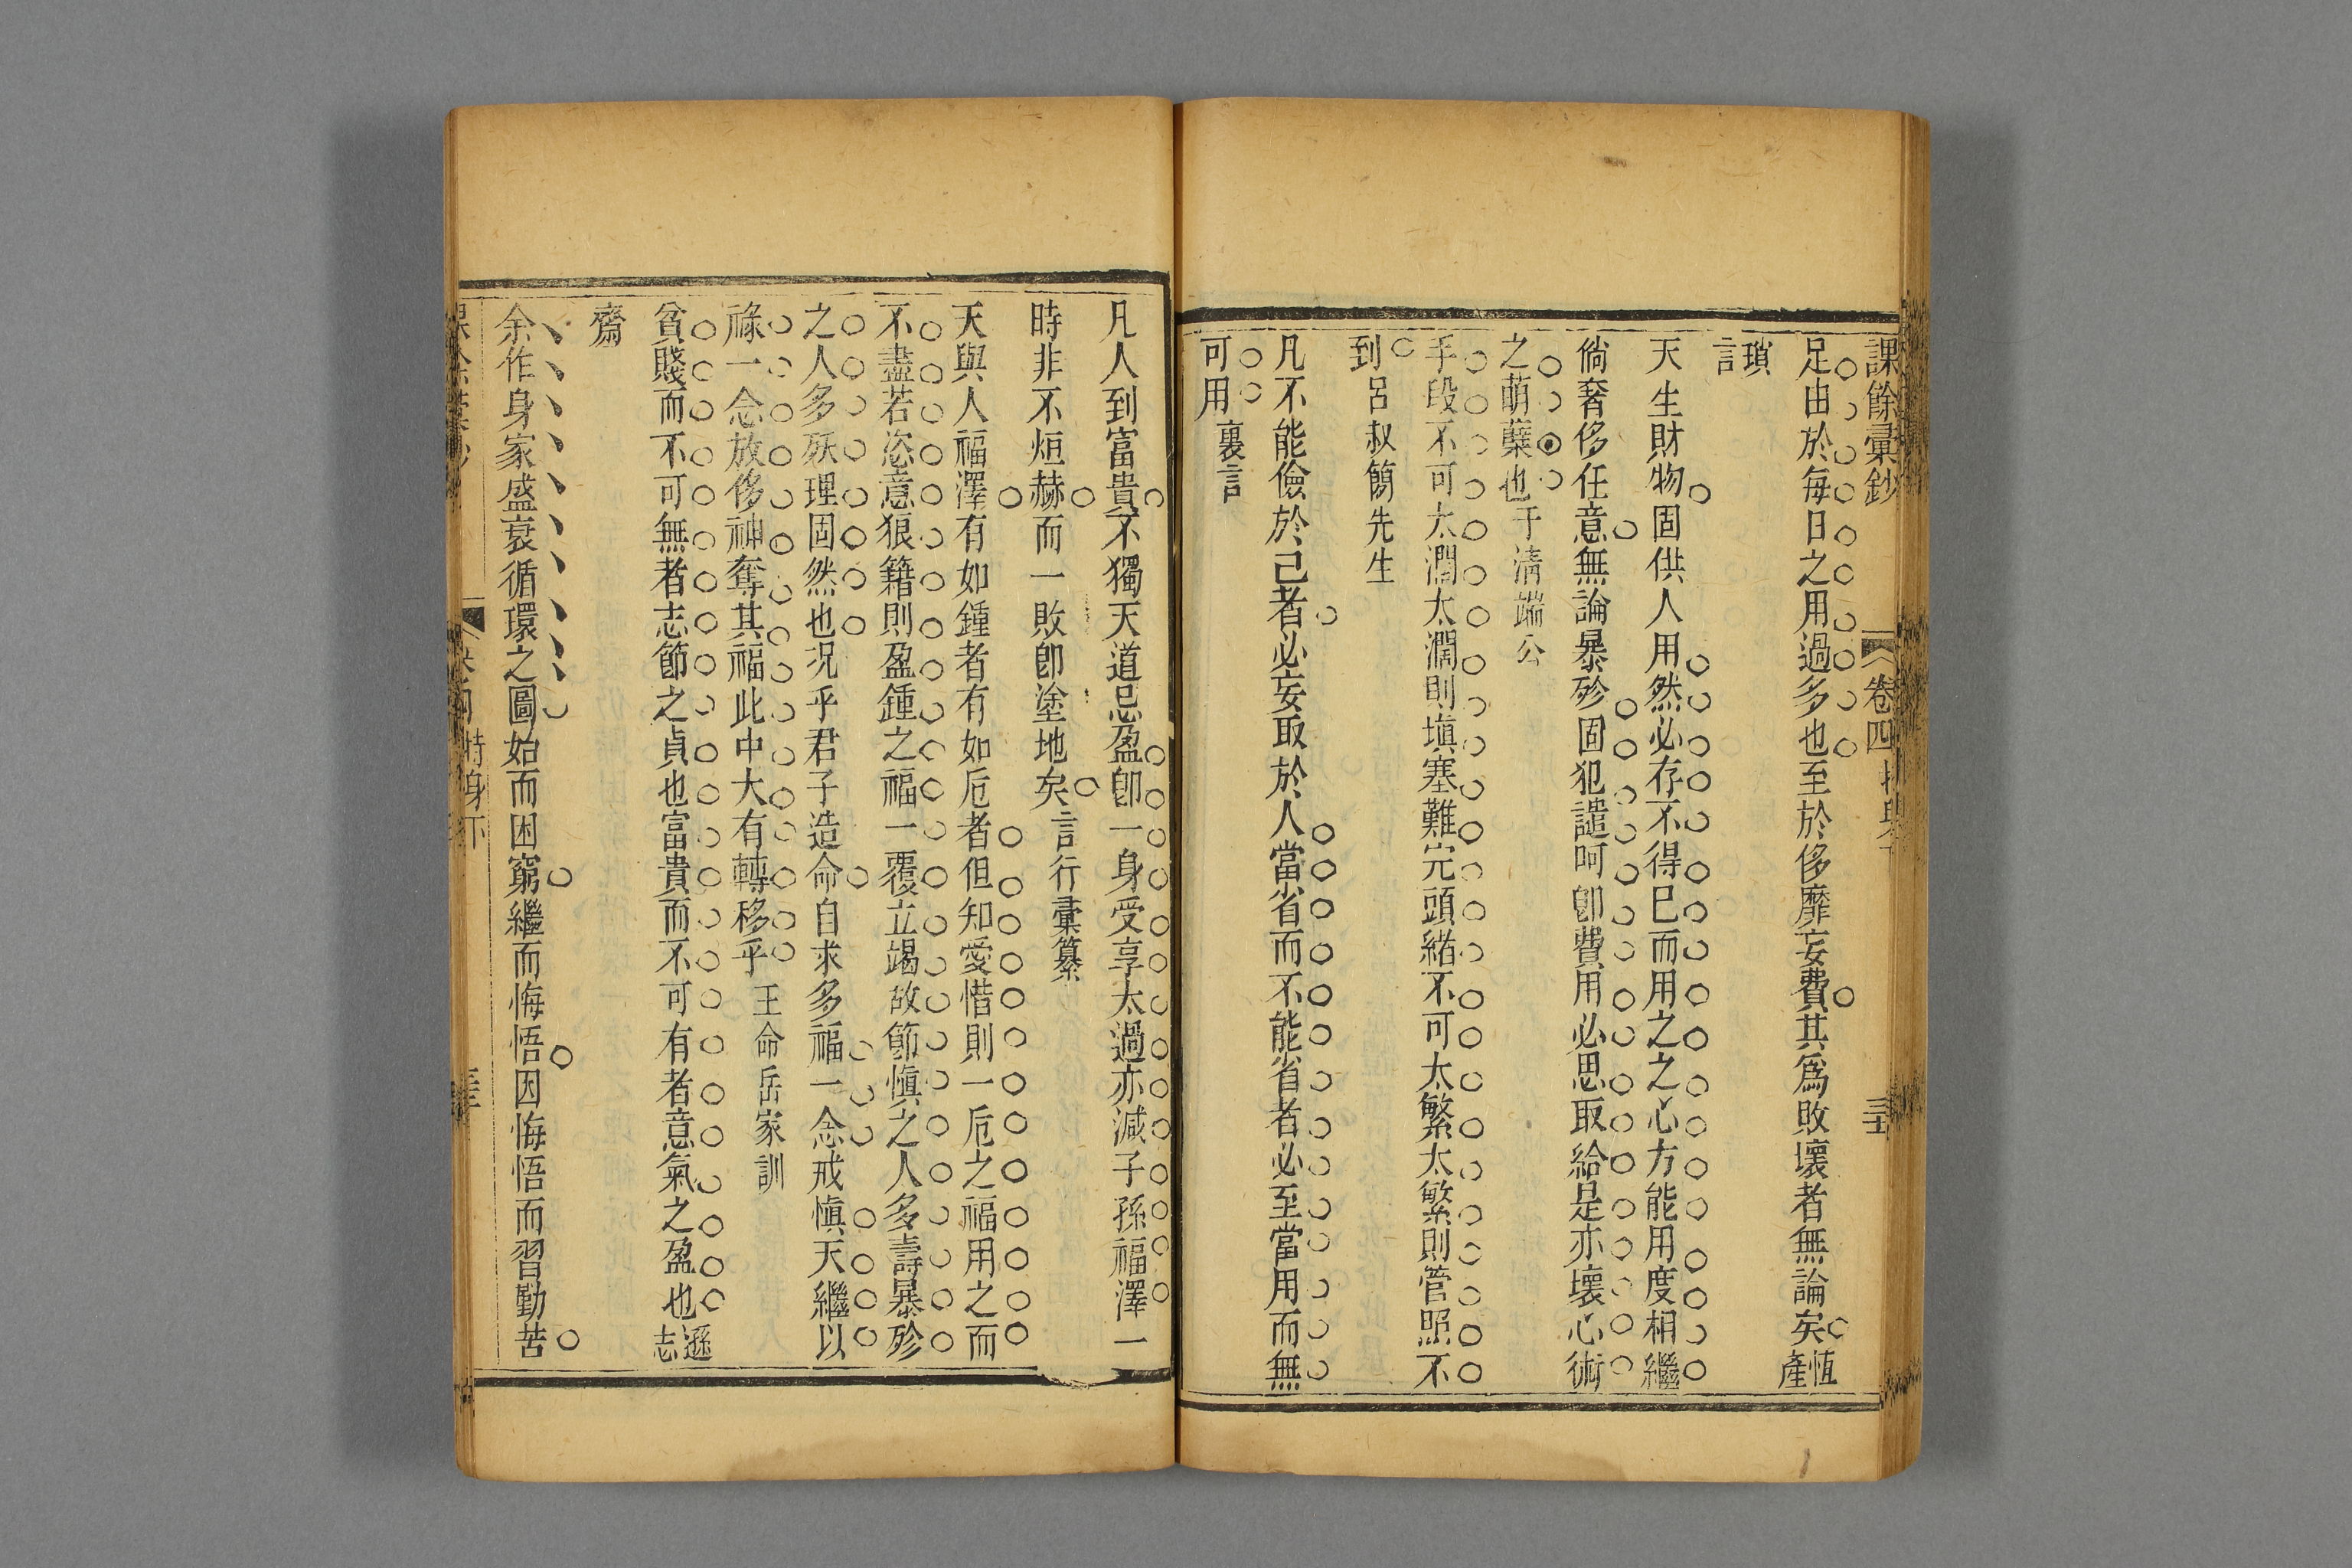 課餘彙鈔
卷四
足由於每日之用過多也至於侈靡妄費其爲敗壞者無論矣恆產
瑣言
天生財物固供人用然必存不得巳而用之之心方能用度相繼
倘奢侈任意無論暴殄固犯譴呵卽費用必思取給是亦壞心術
之萌蘗也于清端公
手段不可太濶太濶則塡塞難完頭緒不可太繁太繁則管照不
到呂叔簡先生
凡不能儉於己者必妄取於人當省而不能省者必至當用而無
可用裏言
凡人到富貴不獨天道忌盈卽一身受享太過亦減子孫福澤一
時非不烜赫而一敗卽塗地矣言行彙纂
天與人福澤有如鍾者有如卮者但知愛惜則一卮之福用之而
不盡若恣意狼籍則盈鍾之福一覆立竭故節愼之人多壽暴殄
之人多殀理固然也况乎君子造命自求多福一念戒愼天繼以
祿一念放侈神奪其福此中大有轉移乎王命岳家訓
貧賤而不可無者志節之貞也富貴而不可有者意氣之盈也遜志
齋
余作身家盛衰循環之圖始而困窮繼而悔悟因悔悟而習勤苦
持身下